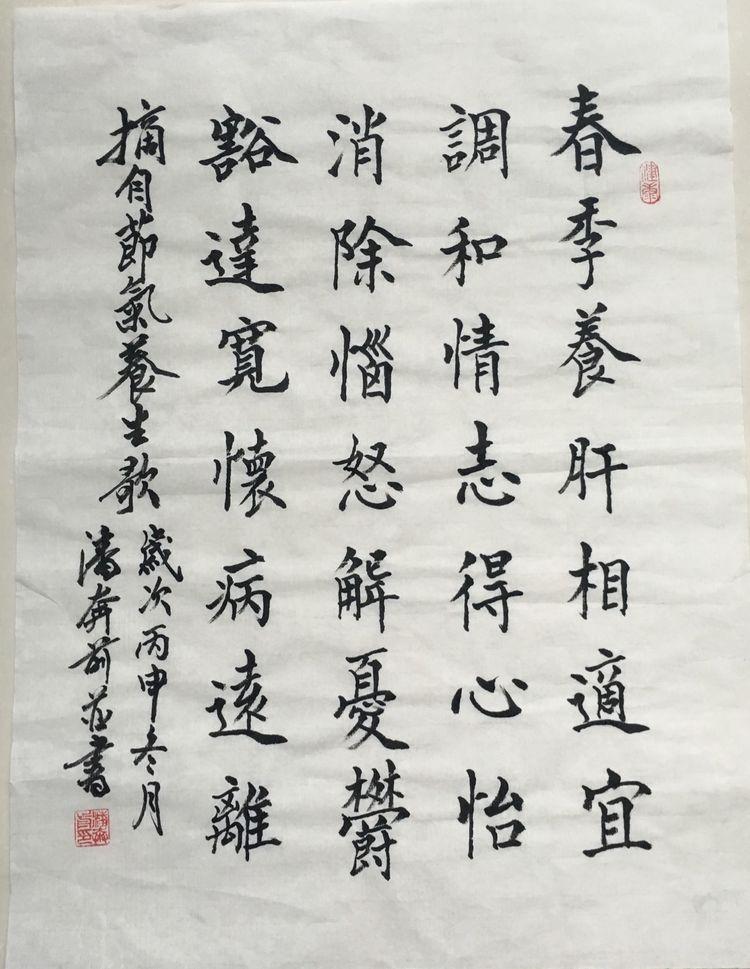 春季養肝相適宜
調和情志得心怡
消除惱怒解憂鬱
豁達寬懷病遠離
摘自節氣養生歌
歲次丙申冬月
潘奔前並書